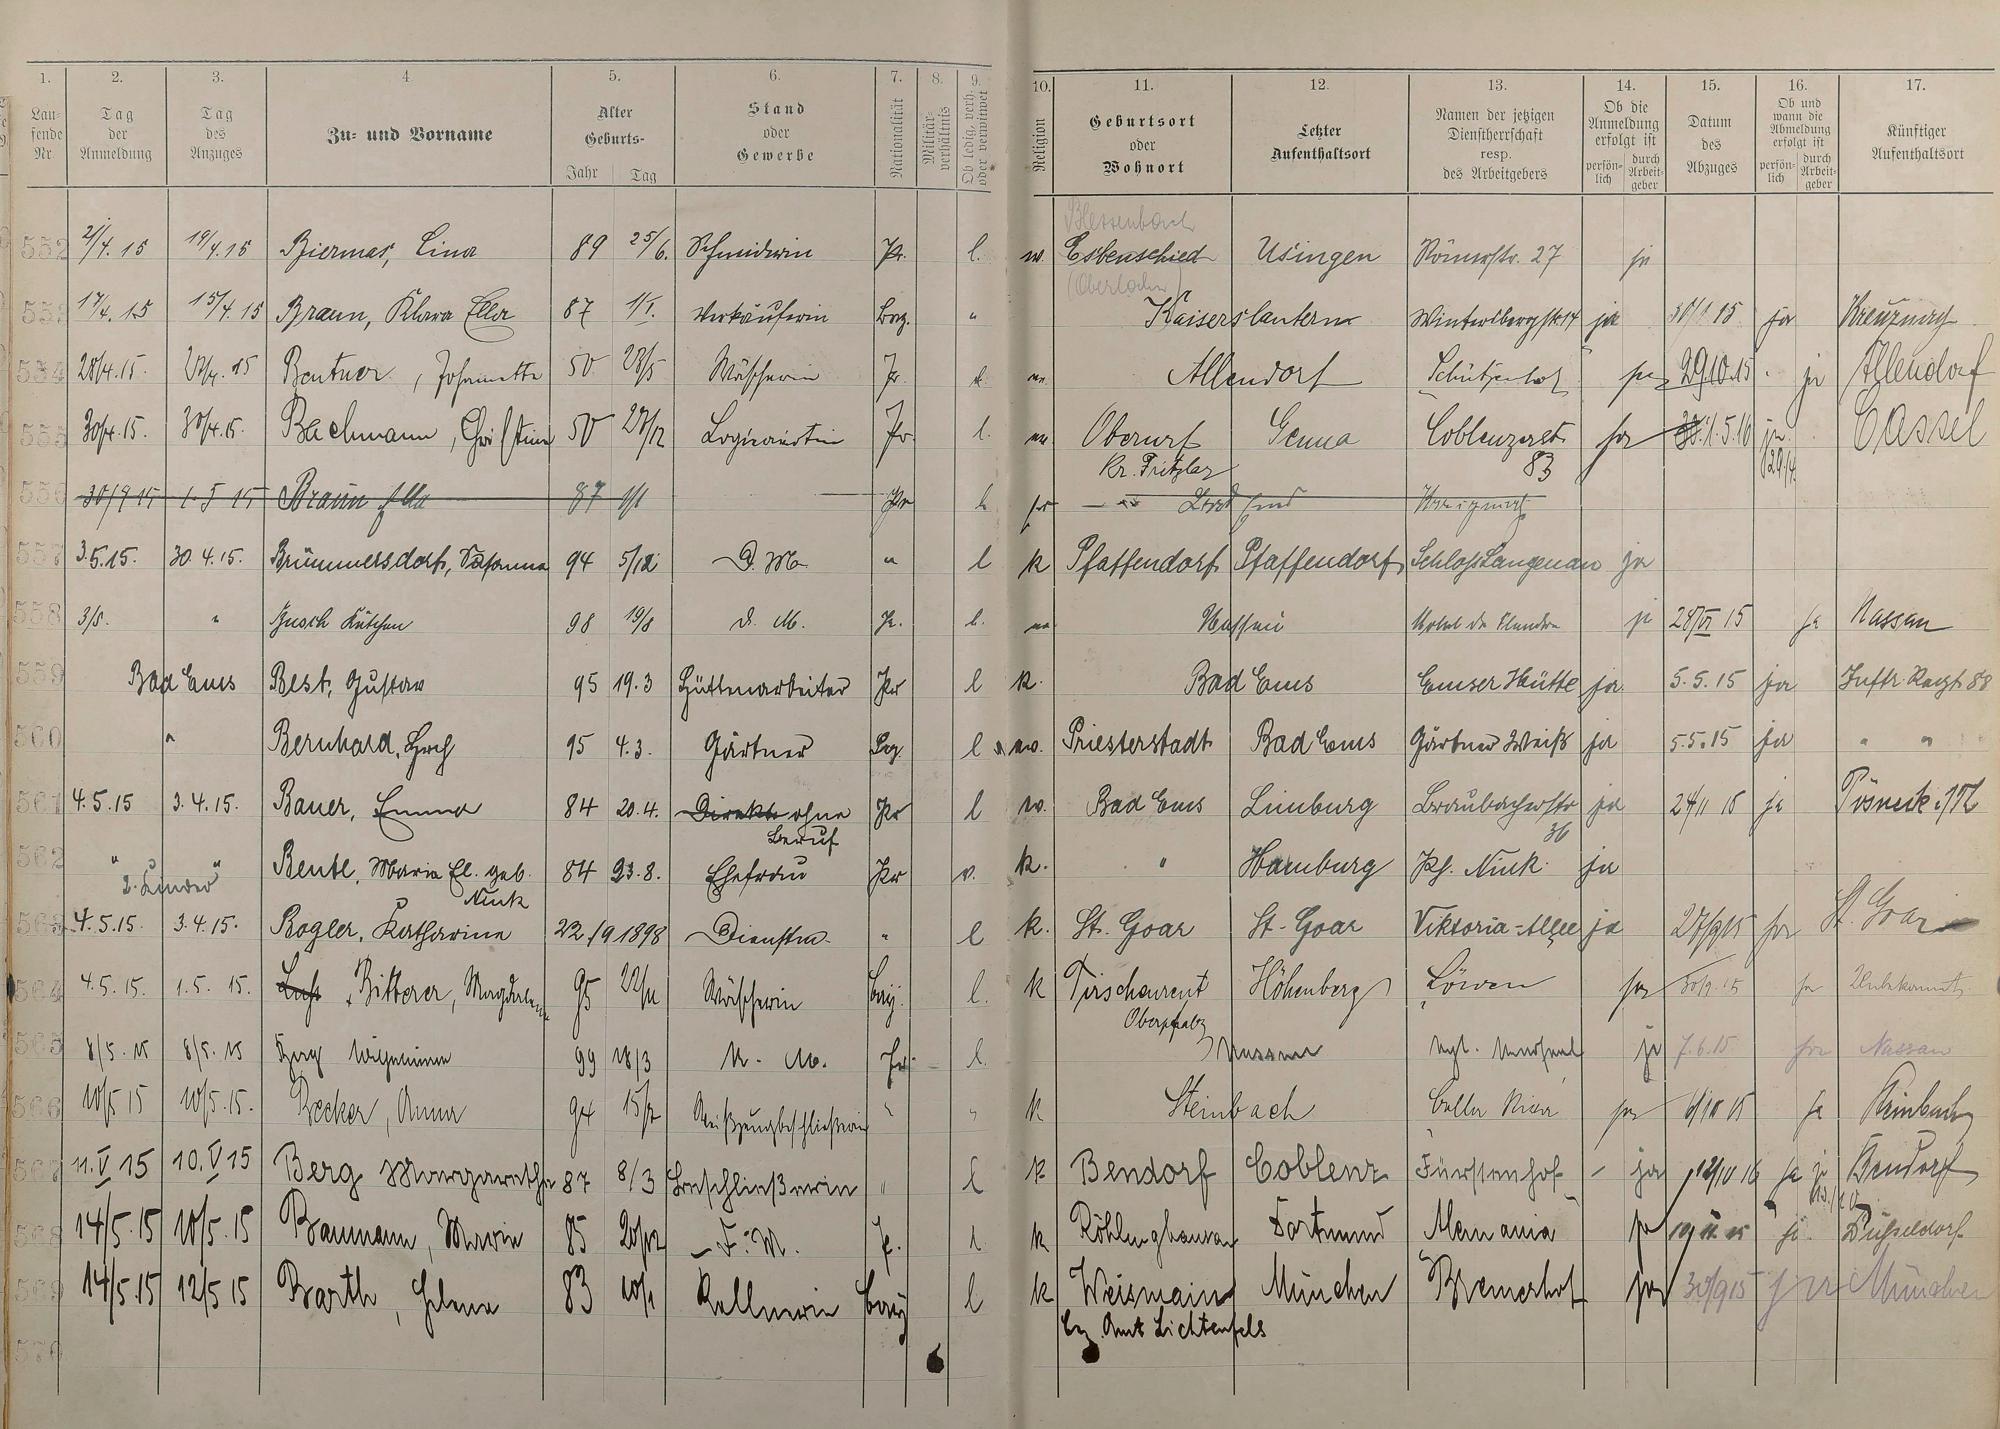 1. 2. 3. 4 5. 6. 7. 8. 9. 10. 11. 12. 13. 14. 15. 16. 17.
Lau-
fende
Nr.
Tag
der
Anmeldung
Tag
des
Anzuges
Zu- und Vorname
Alter
Geburts-
Jahr Tag
Stand
oder
Gewerbe
Nationalität
Militär-
verhältnis
Ob ledig, verh.
oder verwitwet
Religion
Geburtsort
oder
Wohnort
Letzter
Aufenthaltsort
Namen der jetzigen
Dienstherrschaft
resp.
des Arbeitgebers
Ob die
Anmeldung
erfolgt ist
persön-
lich
durch
Arbeit-
geber
Datum
des
Abzuges
Ob und
wann die
Abmeldung
erfolgt ist
persön-
lich
durch
Arbeit-
geber
Künftiger
Aufenthaltsort
Blessenbach
552 2/4. 15 19/4. 15 Lina 89 25/6. Pr. l. Esbenschied Usingen Römerstr. 27 ja
553 17/4. 15 15/4. 15 Braun, Klara Ella 87 1/I. Verkäuferin " Kaiserslautern ja ja Kreuznach
554 28/4. 15. 15 Johannette 50 28/5 Wäscherin Pr. Allendorf Schützenhof 29.10.15 ja Allendorf
555 30/4. 15. 30/4. 15. Bachmann, Christine 50 28/12 l. Oberurf Coblenzerst. ja 1.5.16 ja. Cassel
Kr. Fritzlar 83
556 1. 5 15 Braun Ella 87 1/1 Pr l
557 3.5.15. 30. 4. 15. Brümmersdorf, Susanna 94 5/12 D. M. " l k Pfaffendorf Pfaffendorf Schloß Langenau ja
558 3/5. " Busch Kätchen 98 19/8 d. M. Pr. l. Nassau ja 28/VI 15 ja Nassau
559 Bad Ems Best, Gustav 95 19. 3 Hüttenarbeiter Pr l k. Bad Ems Emser Hütte ja. 5. 5. 15 ja Inftr. Regt 88
560 " Bernhard, Hrch 95 4. 3. Gärtner l Priesterstadt Bad Ems Gärtner Weiß ja 5.5.15 ja " "
561 4. 5. 15 3. 4. 15. Bauer, Emma 84 20. 4. ohne Pr l Bad Ems Limburg Braubacherstr ja 24/11 15 ja
Beruf 36
562 " " Maria El. geb. 84 23. 8. Ehefrau Pr v. k. " Hamburg Nink. ja
2. Kinder Nink
563 4. 5. 15. 3. 4. 15. Bogler, Katharina 22/9 1898 Dienstm. " l k. St. Goar St. Goar Viktoria-Allee ja 27/9 15 ja St. Goar
564 4. 5. 15. 1. 5. 15. Bitterer, Magdalena 95 22/11 Wäscherin bay. l. k Tirschenreut Höhenberg Löwen ja 30/9. 15 ja Unbekannt
Oberpfalz
565 8/5. 15 8/5. 15 99 18/3 Pr. l. Nassau ja 7. 6. 15 ja Nassau
566 10/5 15 10/5. 15. Becker, Anna 94 15/7 Weißzeugbeschließerin " " k Steinbach ja ja Steinbach
567 11. V 15 10. V 15 Berg Margaretha 87 8/3 Beschließerin " l k Bendorf Coblenz Fürstenhof - ja ja Bendorf
568 14/5. 15 10/5. 15 Baumann, Maria 85 20/12 F. M. P. l. k Röhlinghausen Dortmund Alemania ja ja Düsseldorf
569 14/5 15 12/5 15 Barth, Helena 83 10/1 Kellnerin bay l k Weismain München Bremerhof ja 30/9 15 ja München
bz. Amt Lichtenfels
570